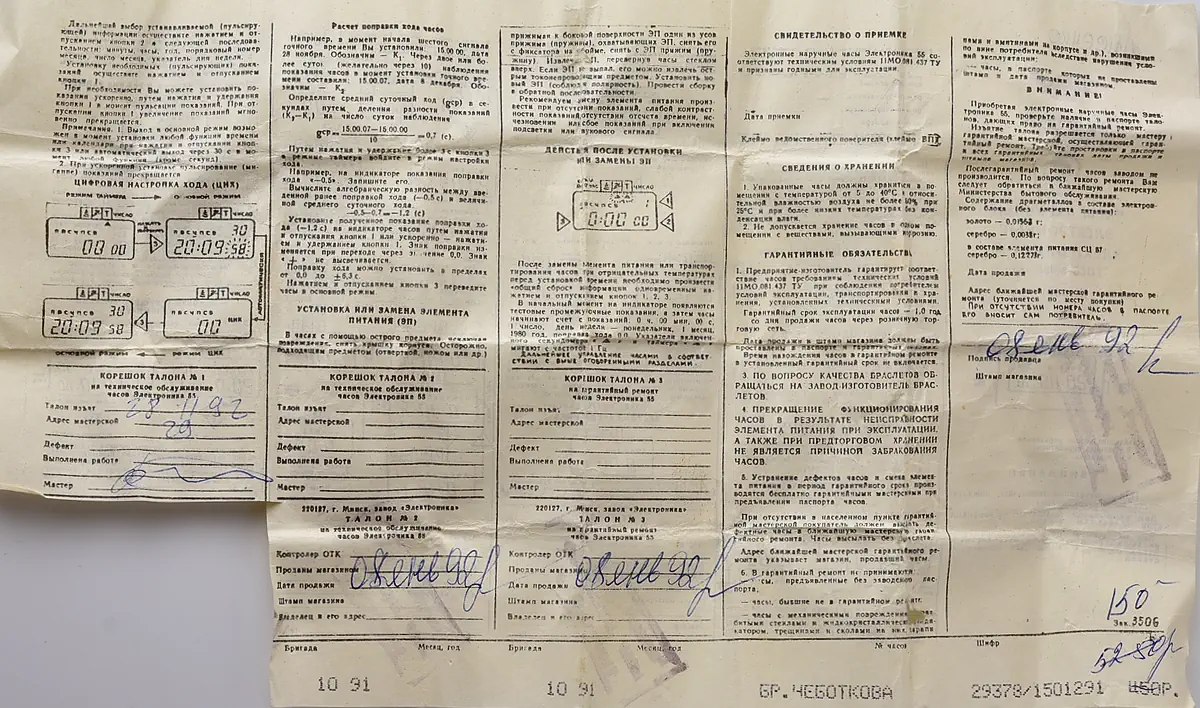 Дальнейший выбор устанавливаемой (пульсирующей) информации осуществите нажатием и отпусканием кнопки 2 в следующей последовательности: минуты, часы, год, порядковый номер месяца, число месяца, указатель дня недели.
Установку необходимых (пульсирующих) показаний осуществите нажатием и отпусканием кнопки 1.
При необходимости Вы можете установить показания ускоренно, путем нажатия и удержания кнопки 1 в момент пульсации показаний. При отпускании кнопки 1 увеличение показаний мгновенно прекращается.
ЦИФРОВАЯ НАСТРОЙКА ХОДА (ЦНХ)
РЕЖИМ ТАЙМЕРА
ОСНОВНОЙ РЕЖИМ
ЧИСЛО
ПВСЧПСВ
00 00
ЧИСЛО
ПВСЧПСВ 30
20:09 58
ЧИСЛО
ПВСЧПСВ 30
20:09 58
ЧИСЛО
00 ЦНХ
ОСНОВНОЙ РЕЖИМ
РЕЖИМ ЦНХ
КОРЕШОК ТАЛОНА № 1
на техническое обслуживание
часов Электроника 55
Талон изъят 28 11 92
Адрес мастерской 29
Дефект
Выполнена работа
Мастер
Расчет поправки хода часов
Например, в момент начала шестого сигнала точного времени Вы установили 15.00.00, дата 28 ноября. Обозначим — К₁. Через двое или более суток (желательно через 10) наблюдения показания часов в момент установки точного времени составили: 15.00.07, дата 8 декабря. Обозначим — К₂
Определите средний суточный ход (gср) в секундах путем деления разности показаний (К₂—К₁) на число суток наблюдения
gср= 15.00.07—15.00.00 =0,7 (с).
10
Путем нажатия и удержания более 3 с кнопки 3 в режиме таймера войдите в режим настройки хода.
Например, на индикаторе показания поправки хода «—0,5». Запишите его.
Вычислите алгебраическую разность между введенной ранее поправкой хода (—0,5 с) и величиной среднего суточного хода
—0,5—0,7=—1,2 (с)
Установите полученное показание поправки хода (—1,2 с) на индикаторе часов путем нажатия и отпускания кнопки 1 или ускоренно — нажатием и удержанием кнопки 1. Знак поправки изменяется при переходе через значение 0,0. Знак «+» не высвечивается.
Поправку хода можно установить в пределах от 0,0 до +6,3 с.
Нажатием и отпусканием кнопки 3 переведите часы в основной режим.
УСТАНОВКА ИЛИ ЗАМЕНА ЭЛЕМЕНТА
ПИТАНИЯ (ЭП)
В часах с помощью острого предмета, исключая повреждение, снять крышку корпуса. Осторожно, подходящим предметом (отверткой, ножом или др.)
КОРЕШОК ТАЛОНА № 2
на техническое обслуживание
часов Электроника 55
Талон изъят
Адрес мастерской
Дефект
Выполнена работа
Мастер
220127, г. Минск, завод «Электроника»
ТАЛОН № 2
на техническое обслуживание
часов Электроника 55
Контролер ОТК
Проданы магазином
Дата продажи 08 янв 92
Штамп магазина
Владелец и его адрес
прижимая к боковой поверхности ЭП один из усов прижима (пружины), охватывающих ЭП, снять его с фиксатора на обойме, снять с ЭП прижим (пружину). Извлечь ЭП, перевернув часы стеклом вверх. Если ЭП не выпал, его можно извлечь острым токонепроводящим предметом. Установить новый ЭП (соблюдая полярность). Провести сборку в обратной последовательности.
Рекомендуем смену элемента питания произвести при отсутствии показаний, слабой контрастности показаний, отсутствии отсчета времени, исчезновении или сбое показаний при включении подсветки или звукового сигнала.
ДЕЙСТВИЯ ПОСЛЕ УСТАНОВКИ
ИЛИ ЗАМЕНЫ ЭП
ЧИСЛО
ПВСЧПСВ 1
0:00 00
После замены элемента питания или транспортирования часов при отрицательных температурах перед установкой времени необходимо произвести «общий сброс» информации одновременным нажатием и отпусканием кнопок 1, 2, 3.
КОРЕШОК ТАЛОНА № 3
на гарантийный ремонт
часов Электроника 55
Талон изъят
Адрес мастерской
Дефект
Выполнена работа
Мастер
220127, г. Минск, завод «Электроника»
ТАЛОН № 3
на гарантийный ремонт
часов Электроника 55
Контролер ОТК
Проданы магазином
Дата продажи 08 янв 92
Штамп магазина
Владелец и его адрес
СВИДЕТЕЛЬСТВО О ПРИЕМКЕ
Электронные наручные часы Электроника 55 соответствуют техническим условиям ПМО.081 437 ТУ и признаны годными для эксплуатации.
Дата приемки
Клеймо ведомственного поверителя (клеймо ВП)
СВЕДЕНИЯ О ХРАНЕНИИ
1. Упакованные часы должны храниться в помещении с температурой от 5 до 40°С и относительной влажностью воздуха не более 80% при 25°С и при более низких температурах без конденсации влаги.
2. Не допускается хранение часов в одном помещении с веществами, вызывающими коррозию.
ГАРАНТИЙНЫЕ ОБЯЗАТЕЛЬСТВА
1. Предприятие-изготовитель гарантирует соответствие часов требованиям технических условий ПМО.081 437 ТУ при соблюдении потребителем условий эксплуатации, транспортирования и хранения, установленных техническими условиями.
Гарантийный срок эксплуатации часов — 1,0 год со дня продажи часов через розничную торговую сеть.
Дата продажи и штамп магазина должны быть проставлены в паспорте и гарантийных талонах.
Время нахождения часов в гарантийном ремонте в установленный гарантийный срок не включается.
3. ПО ВОПРОСУ КАЧЕСТВА БРАСЛЕТОВ ОБРАЩАТЬСЯ НА ЗАВОД-ИЗГОТОВИТЕЛЬ БРАСЛЕТОВ.
4 ПРЕКРАЩЕНИЕ ФУНКЦИОНИРОВАНИЯ ЧАСОВ В РЕЗУЛЬТАТЕ НЕИСПРАВНОСТИ ЭЛЕМЕНТА ПИТАНИЯ ПРИ ЭКСПЛУАТАЦИИ, А ТАКЖЕ ПРИ ПРЕДТОРГОВОМ ХРАНЕНИИ НЕ ЯВЛЯЕТСЯ ПРИЧИНОЙ ЗАБРАКОВАНИЯ ЧАСОВ.
5. Устранение дефектов часов и смена элемента питания в период гарантийного срока производятся бесплатно гарантийными мастерскими при предъявлении паспорта часов.
При отсутствии в населенном пункте гарантийной мастерской покупатель должен выслать дефектные часы в ближайшую мастерскую гарантийного ремонта. Часы высылать без браслета.
Адрес ближайшей мастерской гарантийного ремонта указывает магазин, продавший часы.
6. В гарантийный ремонт не принимаются:
— часы, предъявленные без заводского паспорта;
— часы, бывшие не в гарантийном ремонте;
— часы с механическими повреждениями, разбитыми стеклами и жидкокристаллическим индикатором, трещинами и сколами на них, царапинами и вмятинами на корпусе и др.), возникшими по вине потребителя вследствие нарушения условий эксплуатации;
— часы, в паспорте которых не проставлены штамп и дата продажи магазином.
ВНИМАНИЕ!
Приобретая электронные наручные часы Электроника 55, проверьте наличие в паспорте талонов, дающих право на гарантийный ремонт.
Послегарантийный ремонт часов заводом не производится. По вопросу такого ремонта Вам следует обратиться в ближайшую мастерскую Министерства бытового обслуживания.
Содержание драгметаллов в составе электронного блока (без элемента питания):
в составе элемента питания СЦ
Дата продажи
Адрес ближайшей мастерской гарантийного ремонта (уточняется по месту покупки)
ПРИ ОТСУТСТВИИ НОМЕРА ЧАСОВ В ПАСПОРТЕ ЕГО ВНОСИТ САМ ПОТРЕБИТЕЛЬ.
08 янв 92
Подпись продавца
Штамп магазина
150
Зак. 3506
52-80р
Бригада
Месяц, год
Бригада
Месяц, год
№ часов
Шифр
10 91
10 91
БР.ЧЕБОТКОВА
29378/1501291
Ц50Р.